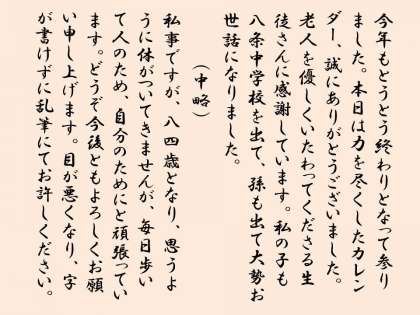 今年もとうとう終わりとなって参り
ました。本日は力を尽くしたカレン
ダー、誠にありがとうございました。
老人を優しくいたわってくださる生
徒さんに感謝しています。私の子も
八条中学校を出て、孫も出て大勢お
世話になりました。
（中略）
私事ですが、八四歳となり、思うよ
うに体がついてきませんが、毎日歩い
て人のため、自分のためにと頑張ってい
ます。どうぞ今後ともよろしくお願
い申し上げます。目が悪くなり、字
が書けずに乱筆にてお許しください。